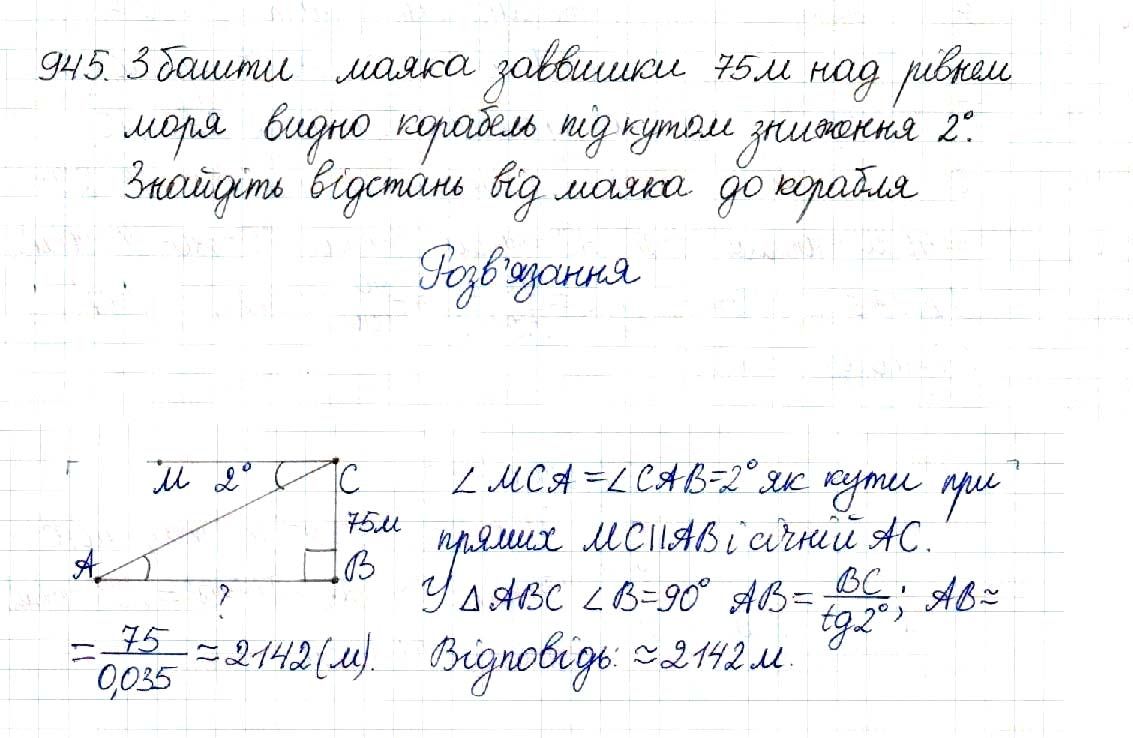 945. З башти маяка заввишки 75м над рівнем
моря видно корабель під кутом зниження 2°.
Знайдіть відстань від маяка до корабля
Розв'язання
М 2° С
75м
А В
?
∠МСА=∠САВ=2° як кути при
прямих МС||АВ і січній АС.
У △АВС ∠В=90° АВ=ВС/tg2°; АВ≈
=75/0,035≈2142(м). Відповідь: ≈2142м.